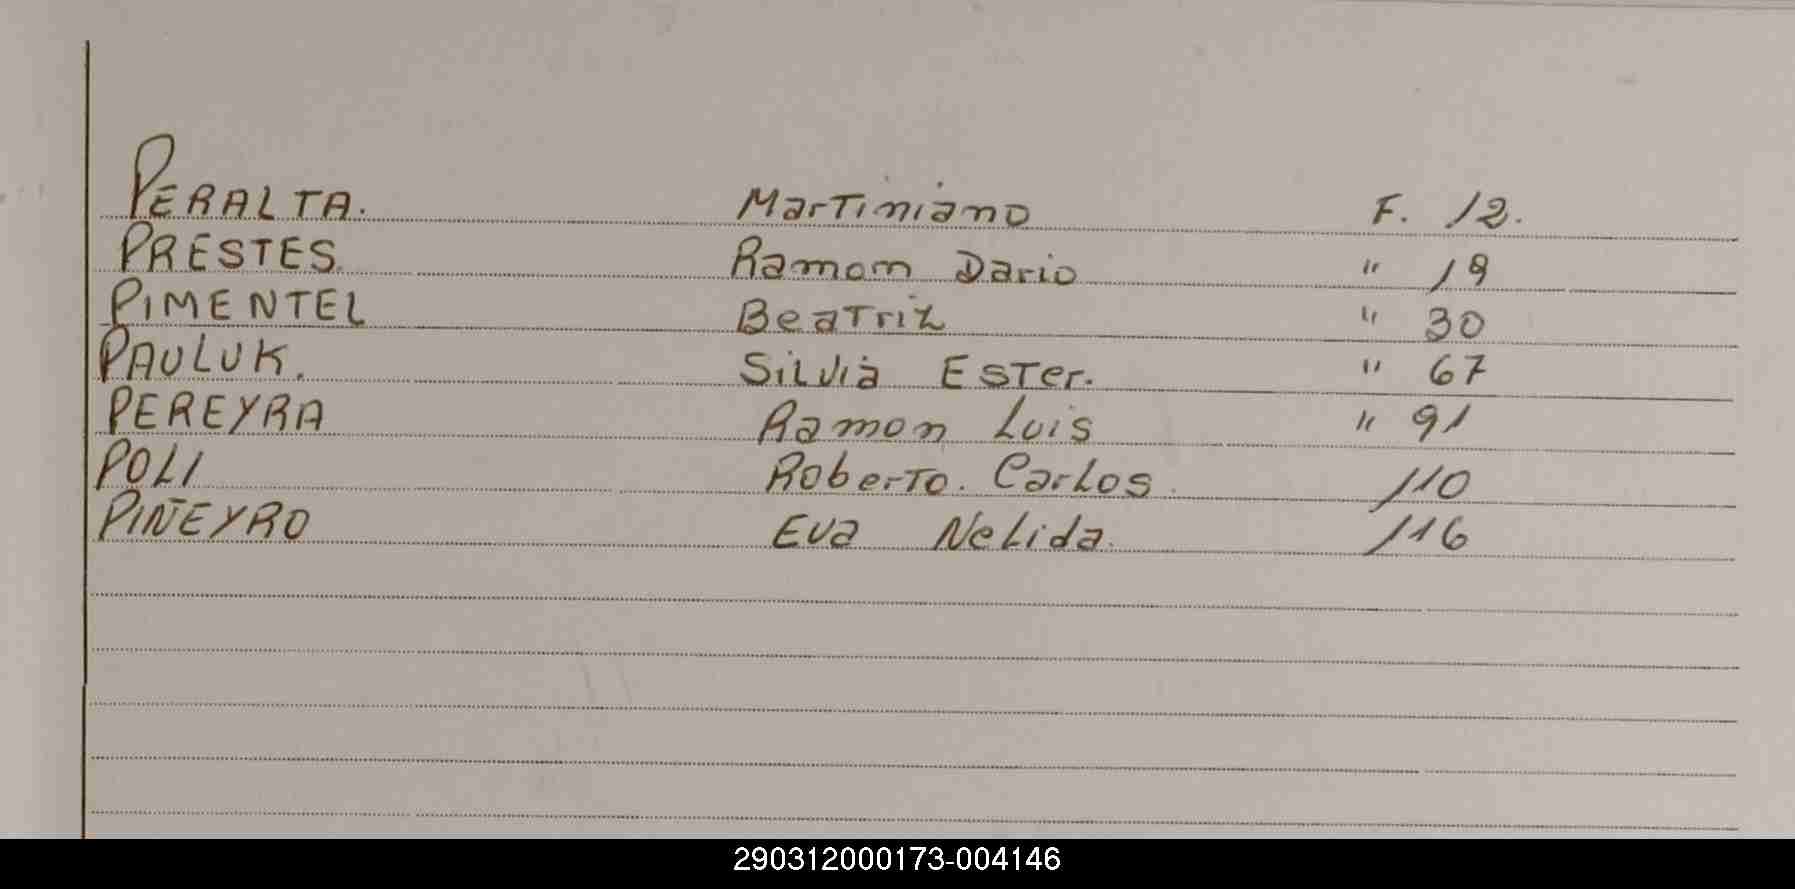 PERALTA. Martiniano F. 12.
PRESTES. Ramom Dario " 19
PIMENTEL Beatriz " 30
PAULUK. Silvia Ester. " 67
PEREYRA Ramon Luis " 91
POLI Roberto. Carlos. 110
PIÑEYRO Eva Nelida. 116
290312000173-004146